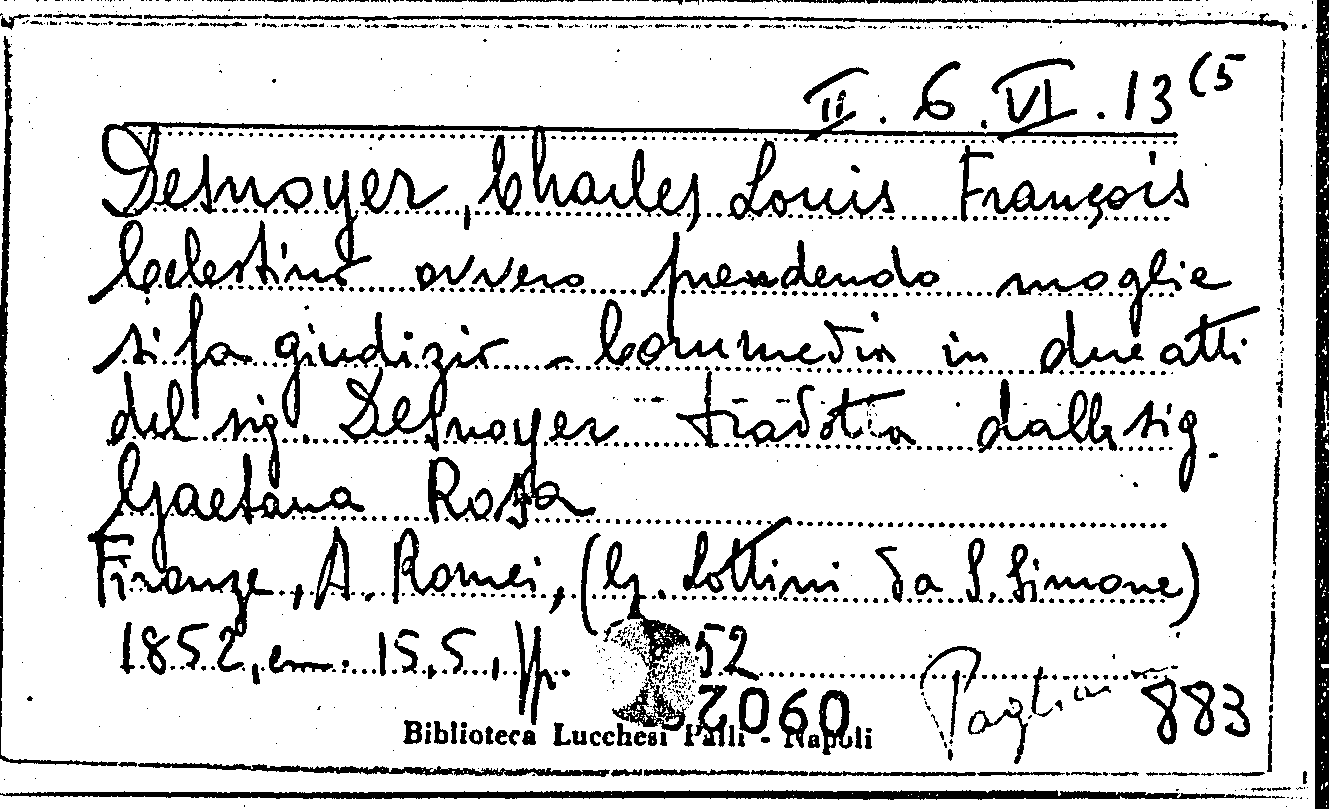 II. 6. VI. 13 (5
Desnoyer, Charles Louis François
Celestino ovvero prendendo moglie
si fa giudizio - Commedia in due atti
del sig. Desnoyer tradotta dalla sig.
Gaetana Rosa
Firenze, A. Romei, (G. Lottini da S. Simone)
1852, cm. 15,5, pp. 52
2060
Biblioteca Lucchesi Palli - Napoli
883